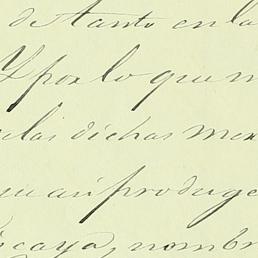 de tanto en la
Y por lo que m
elas dichas mer
que asi produge
iscaya, nombr